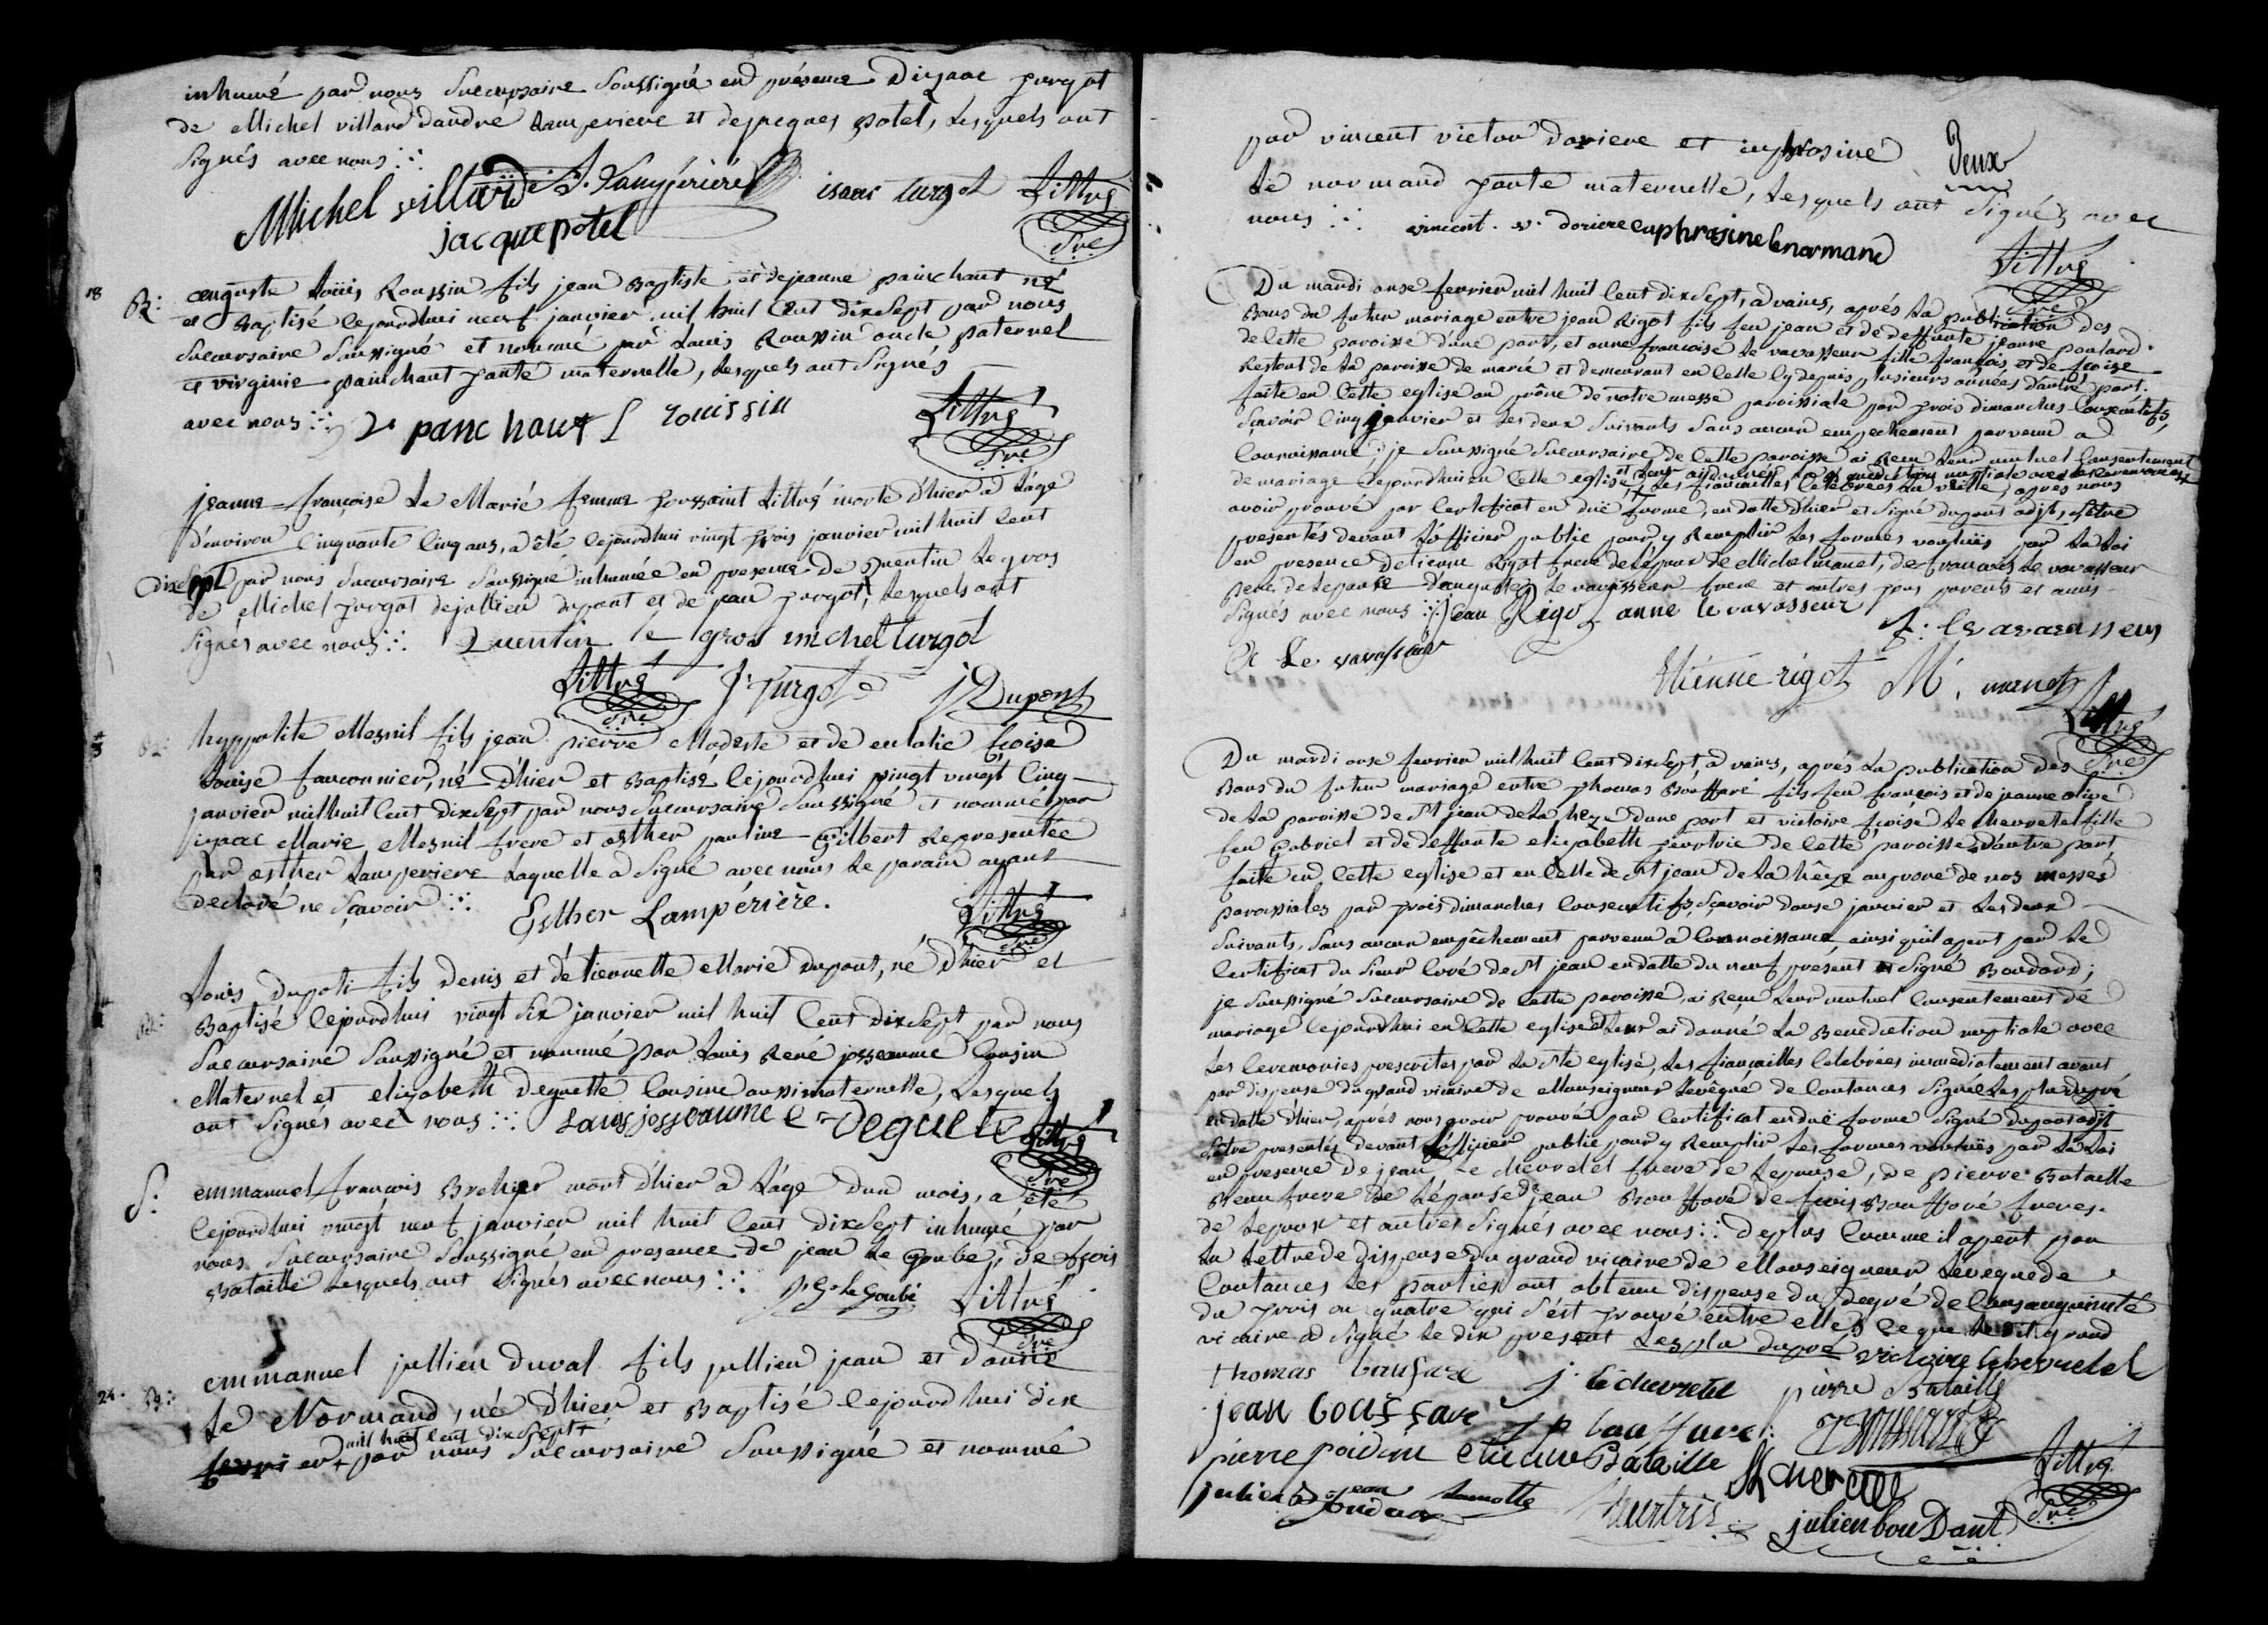 inhumé par nous Succursaire Soussigné en présence Disaac turgot
de Michel villard dandré Lamperiere et dejacques potel, Lesquels ont
Signés avec nous
Michel villard A. Lampérière isaac turgot Littré
jacque potel Sre
18 B: auguste Loüis Roussin fils jean Baptiste et dejeanne painchaut né
et Baptisé cejourdhui neuf janvier mil huit Cent dixsept par nous
Succursaire Soussigné et nommé par Louis Roussin oncle paternel
et virginie painchaut tante maternelle, Lesquels ont Signés
avec nous V panchaut L rouissin Littré
Sre
jeanne françoise Le Marié femme toussaint Littré morte d'hier a L'âge
d'environ Cinquante Cinq ans, a été cejourdhui vingt trois janvier mil huit Cent
dixsept par nous Succursaire Soussigné inhumée en presence de Quentin Le gros
de Michel turgot dejullien dupont et de jean turgot, Lesquels ont
Signés avec nous Quentin le gros michel turgot
Littré J turgot J Dupont
Sre
B: hyppolite Mesnil fils jean pierre Modeste et de eulalie fçoise
Louise fauconnier, né D'hier et Baptisé Cejourdhui vingt Cinq
janvier mil huit Cent dixsept par nous Succursaire Soussigné et nommé par
isaac Marie Mesnil frere et esther pauline Gilbert Representée
par esther Lamperiere Laquelle a Signé avec nous Le parain ayant
Declaré ne Sçavoir Esther Lampérière. Littré
Sre
B: Louis Dupoti fils Denis et détiennette Marie dupont, né D'hier et
Baptisé Cejourdhui vingt Six janvier mil huit Cent dixsept par nous
Succursaire Soussigné et nommé par Louis René josseaume Cousin
Maternel et elizabeth Deguette Cousine aussi maternelle, Lesquels
ont Signés avec nous Louis josseaume e Deguette Littré
Sre
S: emmanuel françois Brehier mort d'hier a L'âge d'un mois, a été
Cejourdhui vingt neuf janvier mil huit Cent dixsept inhumé par
nous Succursaire Soussigné en presence de jean Le goubey, de fçois
Bataille Lesquels ont Signés avec nous Le Goubé Littré
Sre
24. B: emmanuel jullien Duval fils jullien jean et D'anne
Le Normand, né D'hier et Baptisé Cejourdhui dix
mil huit Cent dixsept
fevrier par nous Succursaire Soussigné et nommé
Deux
par vincent victor Doriere et euphrosine
Le normand tante maternelle, Lesquels ont Signés avec
nous vincent. v. doriere euphrasine lenormand
Littré
Sre
Du mardi onse fevrier mil huit Cent dixsept, a vains, aprés La publication des
Bans du futur mariage entre jean Rigot fils feu jean et de deffunte jeanne poulard
de Cette paroisse d'une part, et anne francoise Le vavasseur fille françois et de fçoise
Restout de La paroisse de marié et demeurant en Celle Cy depuis plusieurs années d'autre part.
faite en Cette eglise au prône de notre messe paroissiale par trois dimanches Consecutifs,
Sçavoir Cinq janvier et Les deux Suivants Sans aucun empechement parvenu a
Connoissance; je Soussigné Succursaire de Cette paroisse ai Recu Leur mutuel Consentement
de mariage Cejourdhui en Cette eglise et Leur ai donné La Benediction nuptiale avec Les Ceremonies
Les fiancailles Celebrées La veille, aprés nous
avoir prouvé par Certificat en duë forme, en datte D'hier et Signé dupont adjt, S'être
presentés devant L'officier public pour y Remplir Les formes voulües par La Loi
en presence D'etienne Rigot frere de L'époux de Michel manet, de françois Le vavasseur
pere de L'epouse D'auguste Le vavasseur frere et autres tous parents et amis
Signés avec nous jean Rigo anne levavasseur
A Le vavasseur f: levavasseur
Etienne rigot M. manet
Littré
Sre
Du mardi onse fevrier mil huit Cent dixsept, a vains, aprés La publication Des
Bans du futur mariage entre thomas Bouffaré fils feu francois et de jeanne olive
de La paroisse de St jean de La heze d'une part et victoire fçoise Le chevretel fille
feu gabriel et de deffunte elizabeth de Cette paroisse D'autre part
faite en Cette eglise et en Celle de St jean de La hêze au prone de nos messes
paroissiales par trois dimanches Consecutifs, Sçavoir Douse janvier et Les deux
Suivants, Sans aucun empêchement parvenu a Connoissance, ainsi qu'il apert par Le
Certificat du Sieur Curé de St jean en datte du neuf present et Signé Boudard;
je Soussigné Succursaire de Cette paroisse, ai Reçu Leur mutuel Consentement de
mariage Cejourdhui en Cette eglise et Leur ai donné La Benediction nuptiale avec
Les Ceremonies prescrites par La Ste eglise, Les fiançailles Celebrées immediatement avant
par dispense du grand vicaire de Monseigneur L'evêque de Coutances Signé Lesplu dupré
en datte D'hier, aprés nous avoir prouvé par Certificat en duë forme Signé dupont adjt
S'etre presentés devant L'officier public pour y Remplir Les formes voulües par La Loi
en presence De jean Le chevretel frere de L'epouse, de pierre Bataille
Beau frere de L'épouse de jean Bouffaré de fçois Bouffaré freres
de L'epoux et autres Signés avec nous De plus Comme il apert par
La Lettre de dispense du grand vicaire de Monseigneur L'eveque de
Coutances Les parties ont obtenu dispense du Degré de Consanguinité
du trois au quatre qui S'est trouvé entre elles Ce que Le dit grand
vicaire a Signé Le dix present Lesplu dupré victoire lechevretel
thomas boufare j. lechevretel pierre Bataille
jean bouffare f bouffaré
pierre poidvin etienne Bataille Littré
julien jean Lamotte julien bou Dant Sre